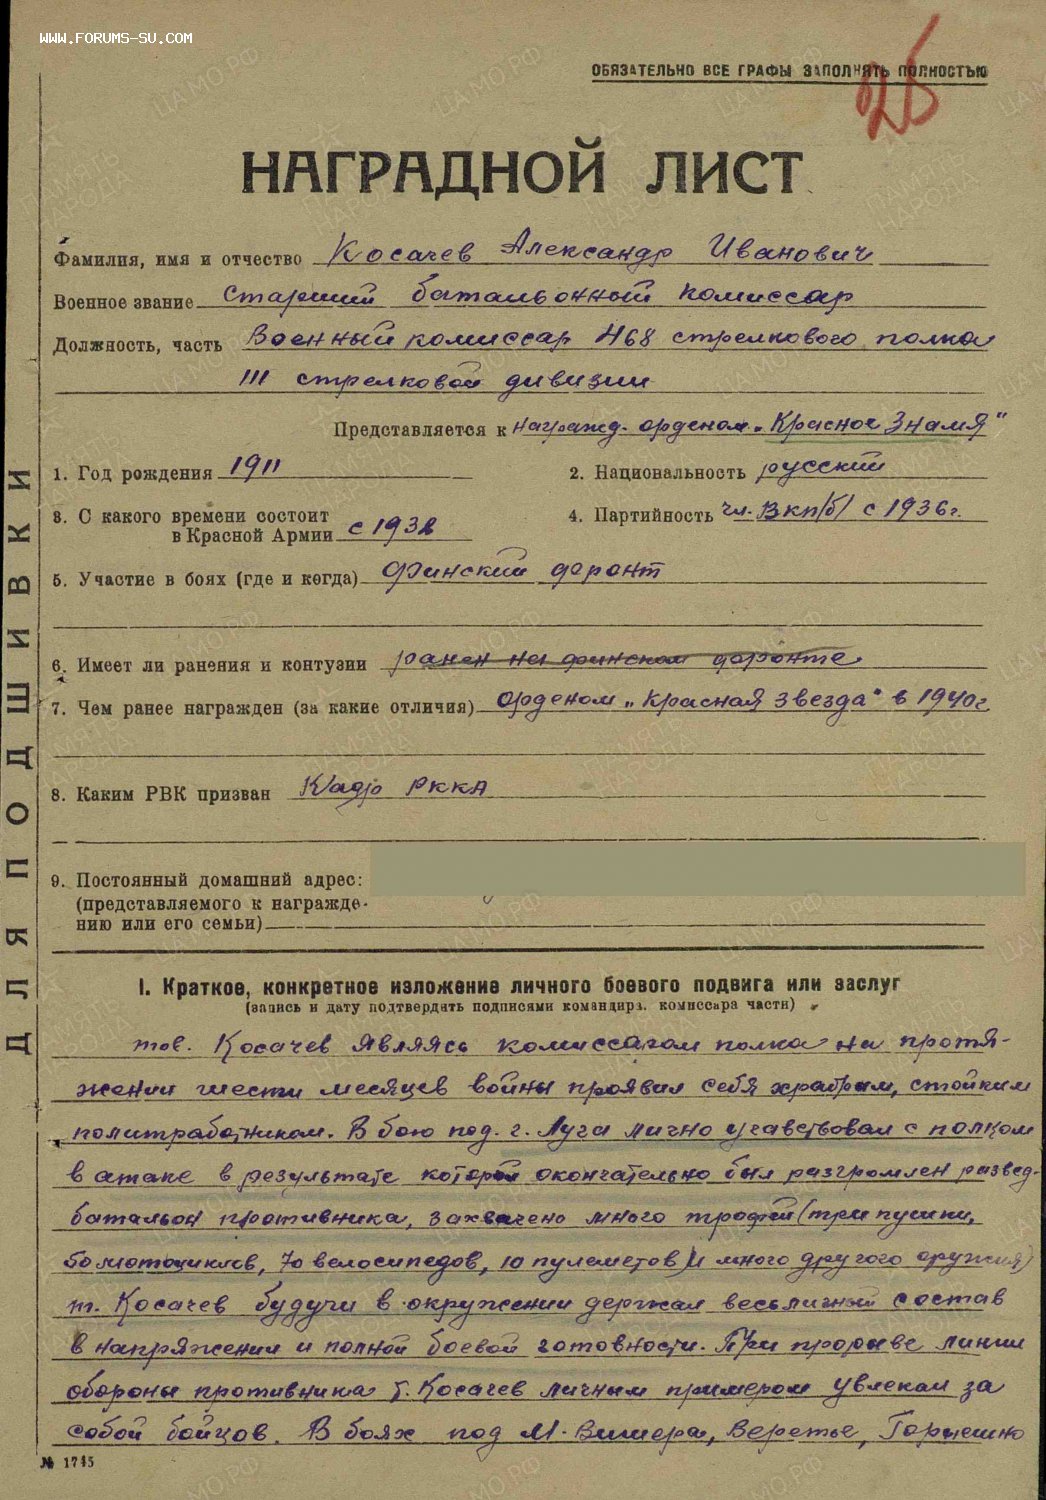 WWW.FORUMS-SU.COM
ОБЯЗАТЕЛЬНО ВСЕ ГРАФЫ ЗАПОЛНЯТЬ ПОЛНОСТЬЮ
НАГРАДНОЙ ЛИСТ
Фамилия, имя и отчество Косачев Александр Иванович
Военное звание Старший батальонный комиссар
Должность, часть Военный комиссар 468 стрелкового полка
111 стрелковой дивизии
Представляется к награжд. орденом „Красное Знамя"
1. Год рождения 1911
2. Национальность русский
3. С какого времени состоит
в Красной Армии с 1932
4. Партийность чл. ВКП/б/ с 1936г.
5. Участие в боях (где и когда) Финский фронт
6. Имеет ли ранения и контузии ранен на финском фронте
7. Чем ранее награжден (за какие отличия) орденом „Красная Звезда" в 1940г
8. Каким РВК призван Кадр РККА
9. Постоянный домашний адрес:
(представляемого к награжде-
нию или его семьи)
I. Краткое, конкретное изложение личного боевого подвига или заслуг
(запись и дату подтвердить подписями командира, комиссара части)
тов. Косачев являясь комиссагом полка на протя-
жении шести месяцев войны проявил себя храбрым, стойким
политработником. В бою под. г. Луга лично учавствовал с полком
в атаке в результате которой окончательно был разгромлен развед-
батальон противника, захвачено много трофей (три пушки,
50 мотоциклов, 70 велосипедов, 10 пулеметов и много другого оружия)
т. Косачев будучи в окружении держал весь личный состав
в напряжении и полной боевой готовности. При прорыве линии
обороны противника т. Косачев личным примером увлекал за
собой бойцов. В боях под М-Вишера, Веретье, Горнешно
№ 1745
ДЛЯ ПОДШИВКИ